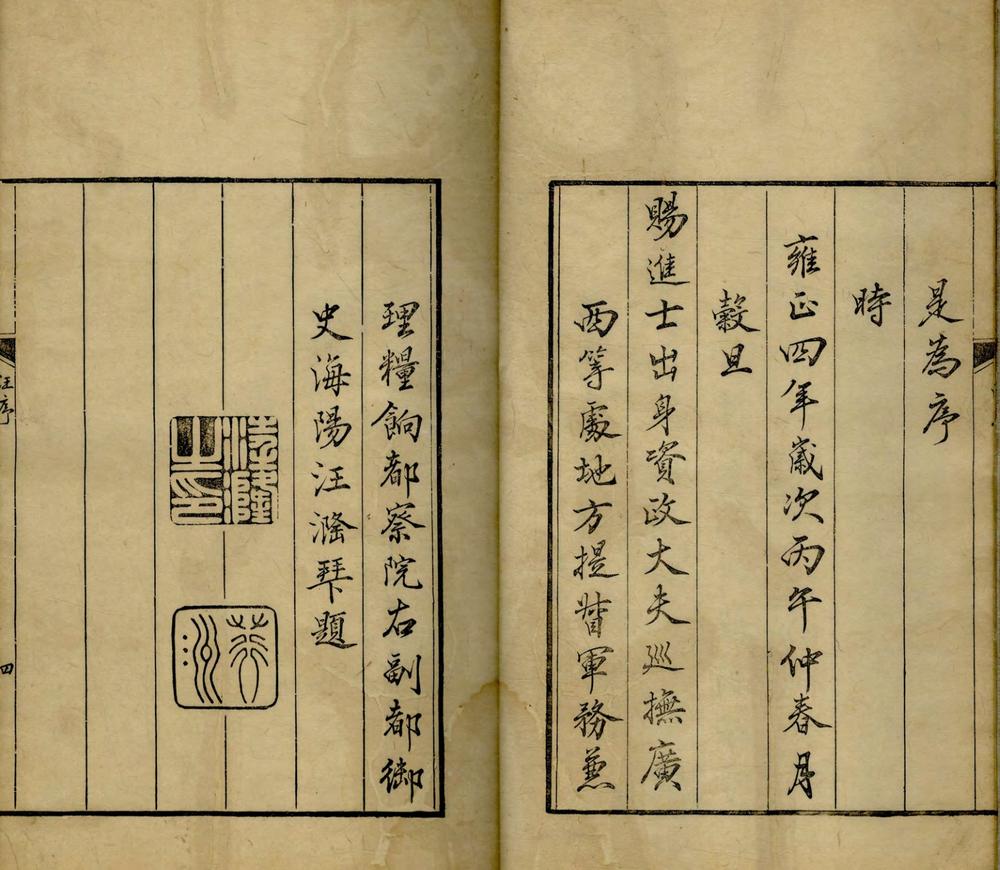 是為序
時
雍正四年歲次丙午仲春月
穀旦
賜進士出身資政大夫巡撫廣
西等處地方提督軍務兼
理糧餉都察院右副都御
史海陽汪漋拜題
汪序
四